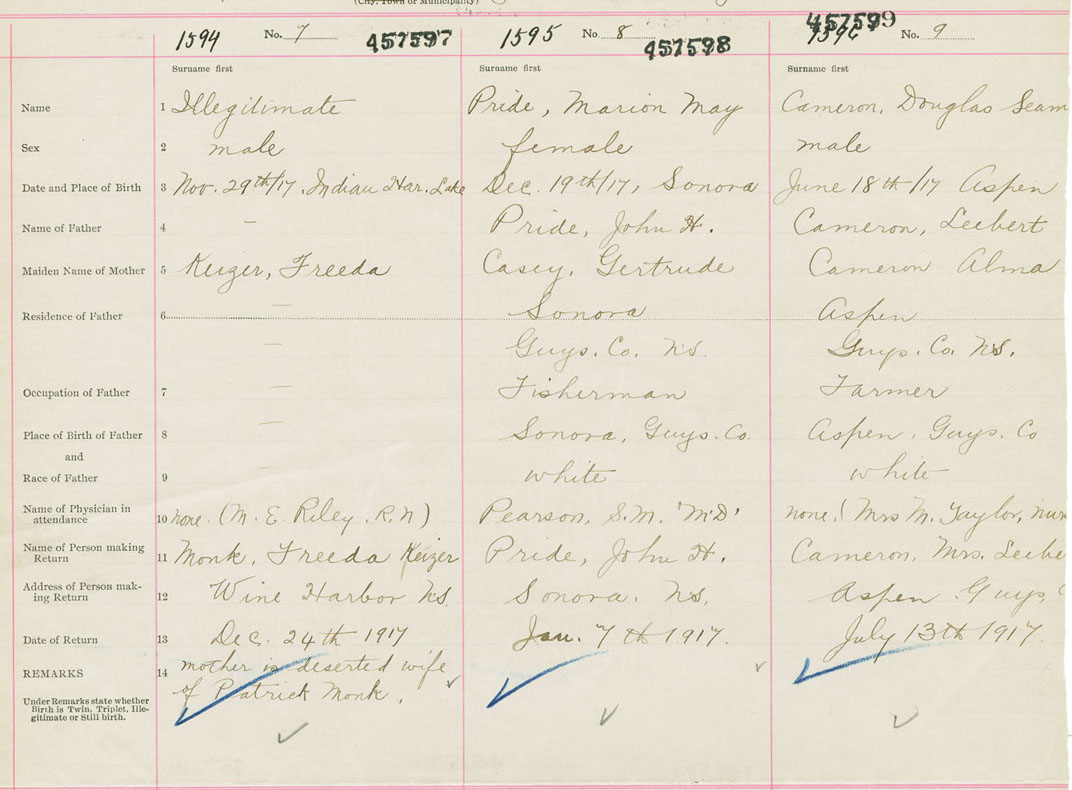 (City, Town or Municipality)
1594 No. 7 457597
1595 No 8 457598
457599 No. 9
Surname first Surname first Surname first
Name 1 Illegitimate Pride, Marion May Cameron, Douglas Seam
Sex 2 male female male
Date and Place of Birth 3 Nov. 29th/17. Indian Har. Lake Dec. 19th/17, Sonora June 18th/17 Aspen
Name of Father 4 — Pride, John H. Cameron, Leebert
Maiden Name of Mother 5 Keizer, Freeda Casey, Gertrude Cameron Alma
Residence of Father 6 — Sonora Aspen
— Guys. Co. N.S. Guys. Co. N.S.
Occupation of Father 7 — Fisherman Farmer
Place of Birth of Father 8 — Sonora, Guys. Co. Aspen. Guys. Co
and
Race of Father 9 — white white
Name of Physician in
attendance 10 none. (M. E. Riley. R.N) Pearson, S.M. 'M.D' none. (Mrs M. Taylor, nur
Name of Person making
Return 11 Monk, Freeda Keizer Pride, John H. Cameron, Mrs. Leebe
Address of Person mak-
ing Return 12 Wine Harbor N.S. Sonora. N.S. Aspen. Guys.
Date of Return 13 Dec. 24th 1917 Jan. 7th 1917. July 13th 1917.
REMARKS 14 mother is deserted wife
of Patrick Monk.
Under Remarks state whether
Birth is Twin, Triplet, Ille-
gitimate or Still birth.